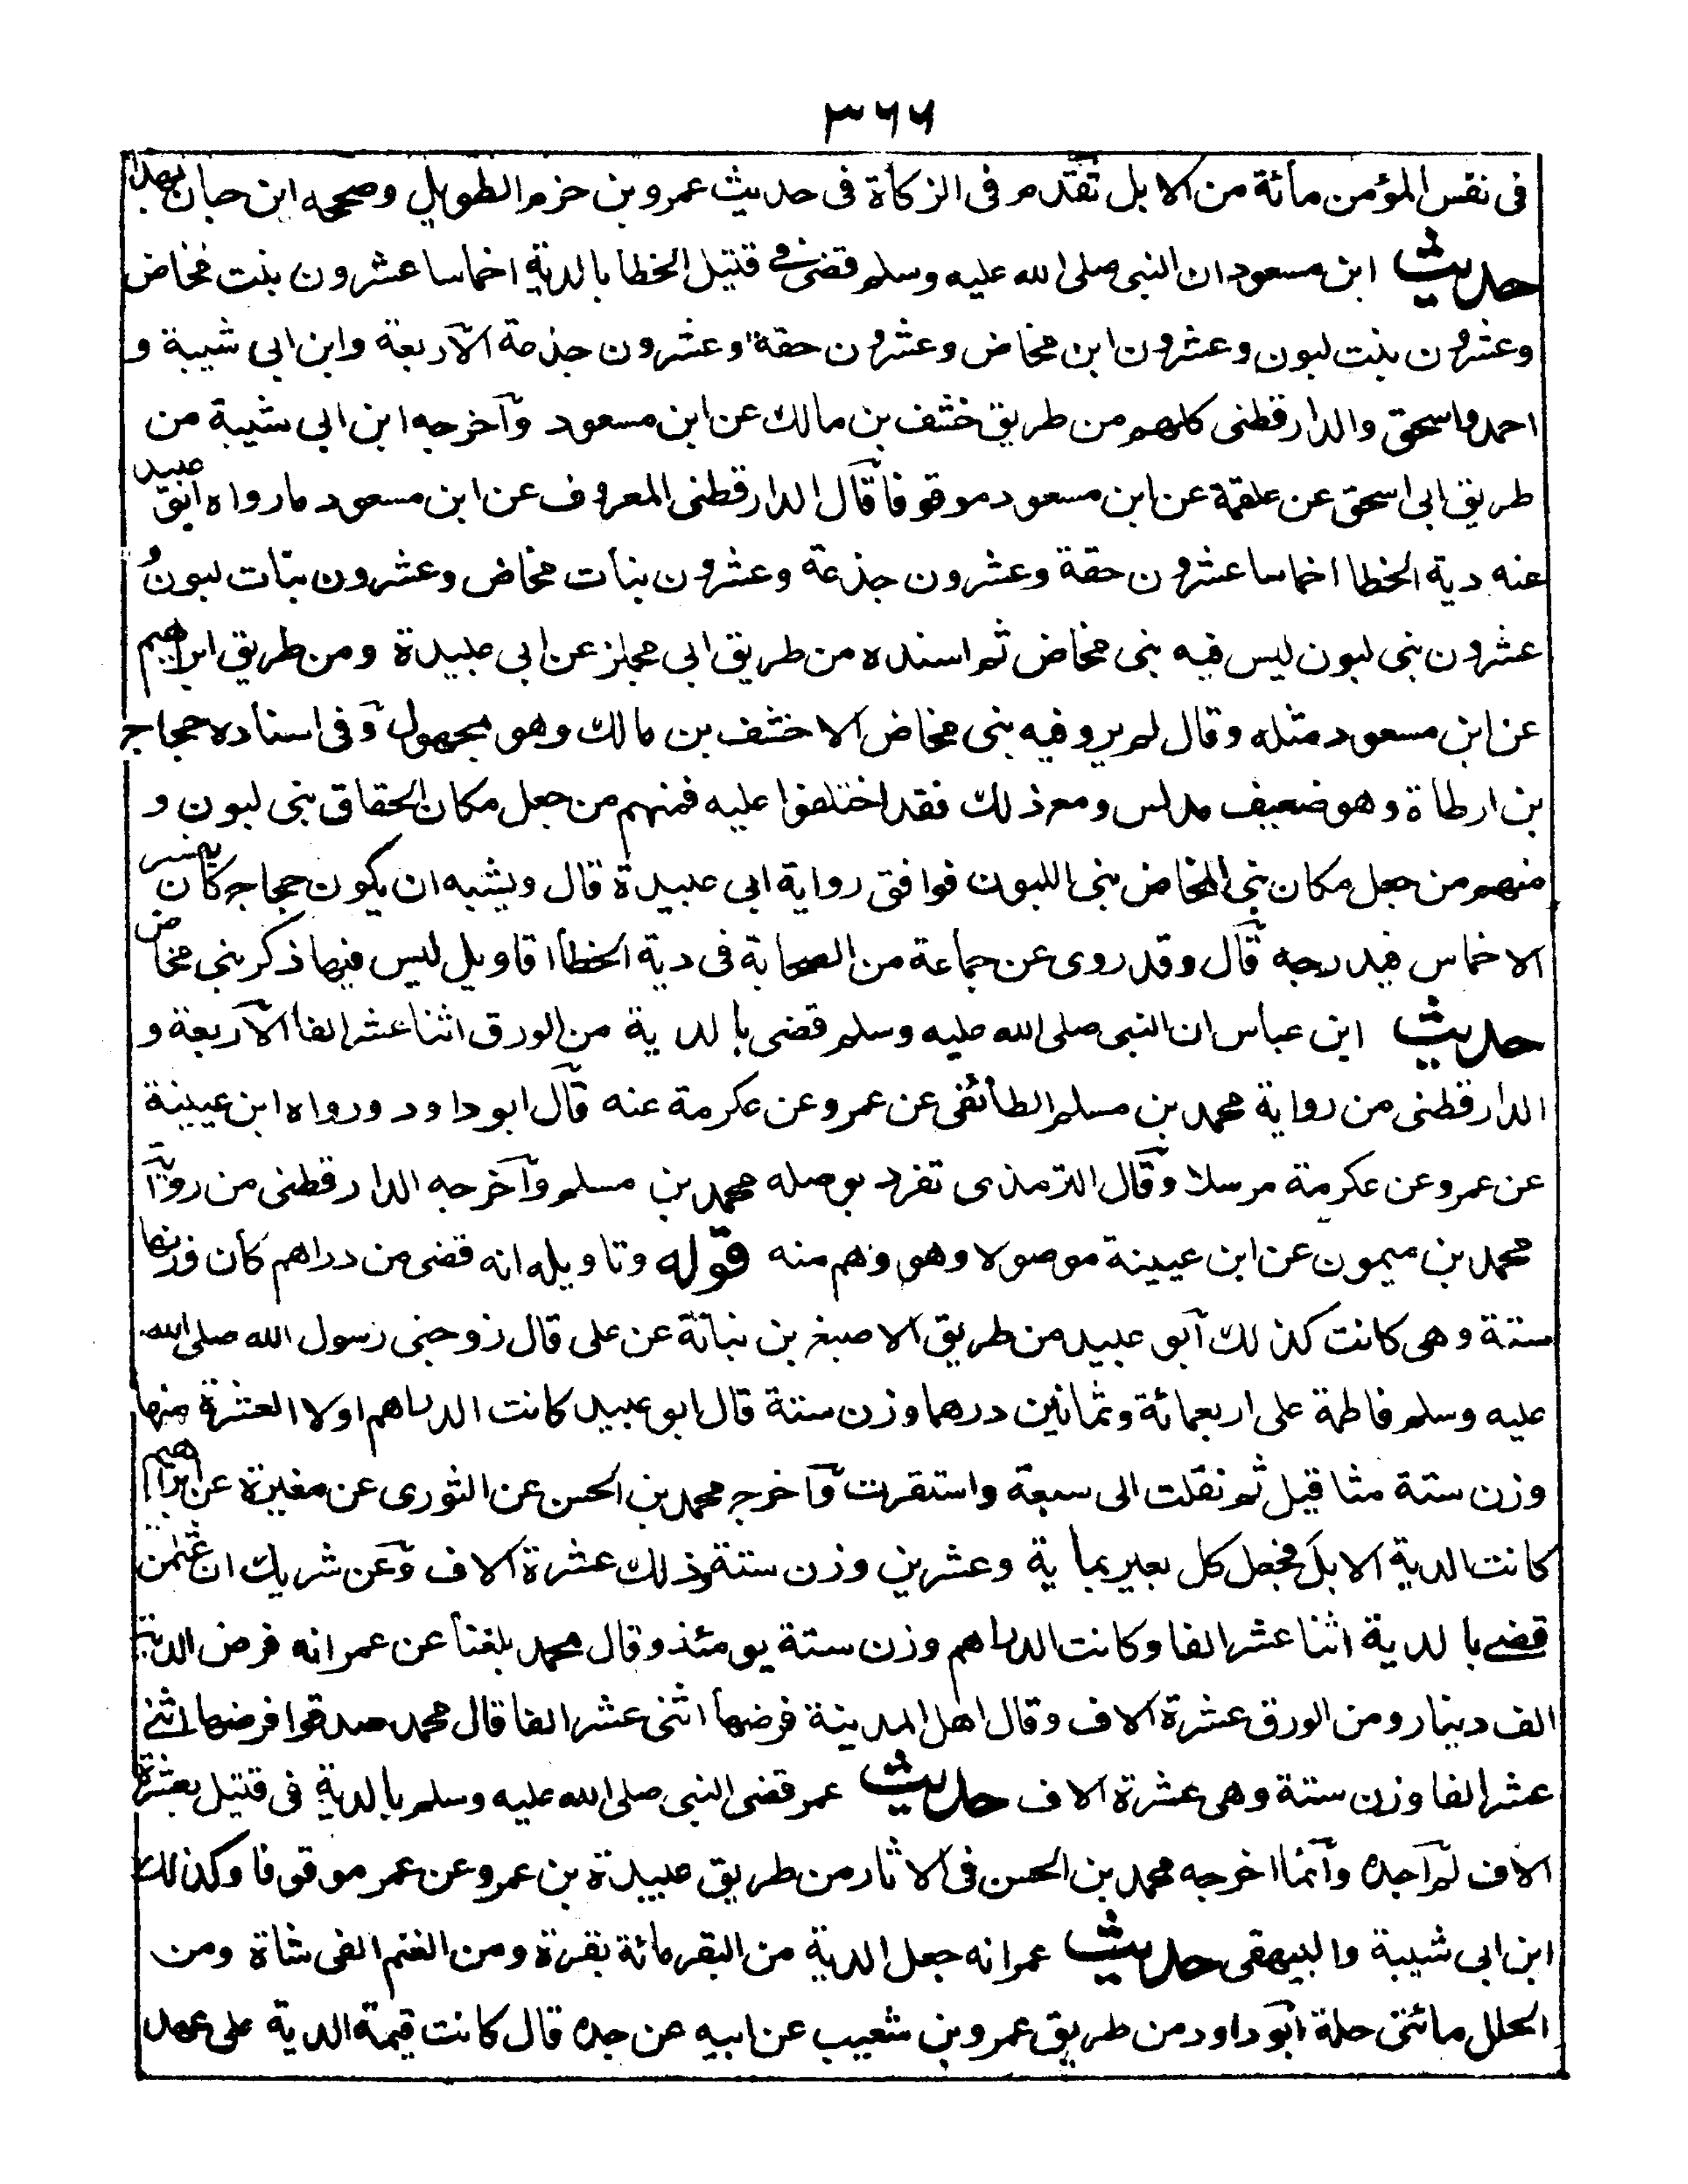 ٣٦٦
فى نفس المؤمن مائة من الابل تقدم فى الزكاة فى حديث عمرو بن حزم الطويل وصححه ابن حبان بهذا
حديث ابن مسعود ان النبى صلى الله عليه وسلم قضى فى قتيل الخطا بالدية اخماسا عشرون بنت مخاض
وعشرون بنت لبون وعشرون ابن مخاض وعشرون حقة وعشرون جذعة الاربعة وابن ابى شيبة و
احمد واسحق والدارقطنى كلهم من طريق خشف بن مالك عن ابن مسعود وآخرجه ابن ابى شيبة من
طريق ابى اسحق عن علقمة عن ابن مسعود موقوفا قال الدارقطنى المعروف عن ابن مسعود مارواه ابو عبيد
عنه دية الخطا اخماسا عشرون حقة وعشرون جذعة وعشرون بنات مخاض وعشرون بنات لبون و
عشرون بنى لبون ليس فيه بنى مخاض ثم اسنده من طريق ابى مجلز عن ابى عبيدة ومن طريق ابراهيم
عن ابن مسعود مثله وقال لم يرو فيه بنى مخاض الا خشف بن مالك وهو مجهول وفى اسناده حجاج
بن ارطاة وهو ضعيف مدلس ومع ذلك فقد اختلفوا عليه فمنهم من جعل مكان الحقاق بنى لبون و
منهم من جعل مكان بنى المخاض بنى اللبون فوافق رواية ابى عبيدة قال ويشبه ان يكون حجاج كان يفسر
الاخماس فيدرجه قال وقد روى عن جماعة من الصحابة فى دية الخطأ اقاويل ليس فيها ذكر بنى مخاض
حديث ابن عباس ان النبى صلى الله عليه وسلم قضى بالدية من الورق اثنا عشر الفا الاربعة و
الدارقطنى من رواية محمد بن مسلم الطائفى عن عمرو عن عكرمة عنه قال ابو داود ورواه ابن عيينة
عن عمرو عن عكرمة مرسلا وقال الترمذى تفرد بوصله محمد بن مسلم وآخرجه الدارقطنى من رواية
محمد بن ميمون عن ابن عيينة موصولا وهو وهم منه قوله وتاويله انه قضى من دراهم كان وزنها
ستة وهى كانت كذلك آبو عبيد من طريق الاصبغ بن نباتة عن على قال زوجنى رسول الله صلى الله
عليه وسلم فاطمة على اربعمائة وثمانين درهما وزن ستة قال ابو عبيد كانت الدراهم اولا العشرة منها
وزن ستة مثاقيل ثم نقلت الى سبعة واستقرت وآخرج محمد بن الحسن عن الثورى عن مغيرة عن ابراهيم
كانت الدية الابل فجعل كل بعير بماية وعشرين وزن ستة وذلك عشرة الاف وعن شريك ان عثمن
قضے بالدية اثنا عشر الفا وكانت الدراهم وزن ستة يومئذ وقال محمد بلغنا عن عمر انه فرض الدية
الف دينار ومن الورق عشرة الاف وقال اهل المدينة فرضها اثنى عشر الفا قال محمد صدقوا فرضها اثنے
عشر الفا وزن ستة وهى عشرة الاف حديث عمر قضى النبى صلى الله عليه وسلم بالدية فى قتيل بعشرة
الاف لم اجده وآنما اخرجه محمد بن الحسن فى الاثار من طريق عبيدة بن عمرو عن عمر موقوفا وكذلك
ابن ابى شيبة والبيهقى حديث عمر انه جعل الدية من البقر مائة بقرة ومن الغنم الفى شاة ومن
الحلل مائتى حلة آبو داود من طريق عمرو بن شعيب عن ابيه عن جده قال كانت قيمة الدية على عهد